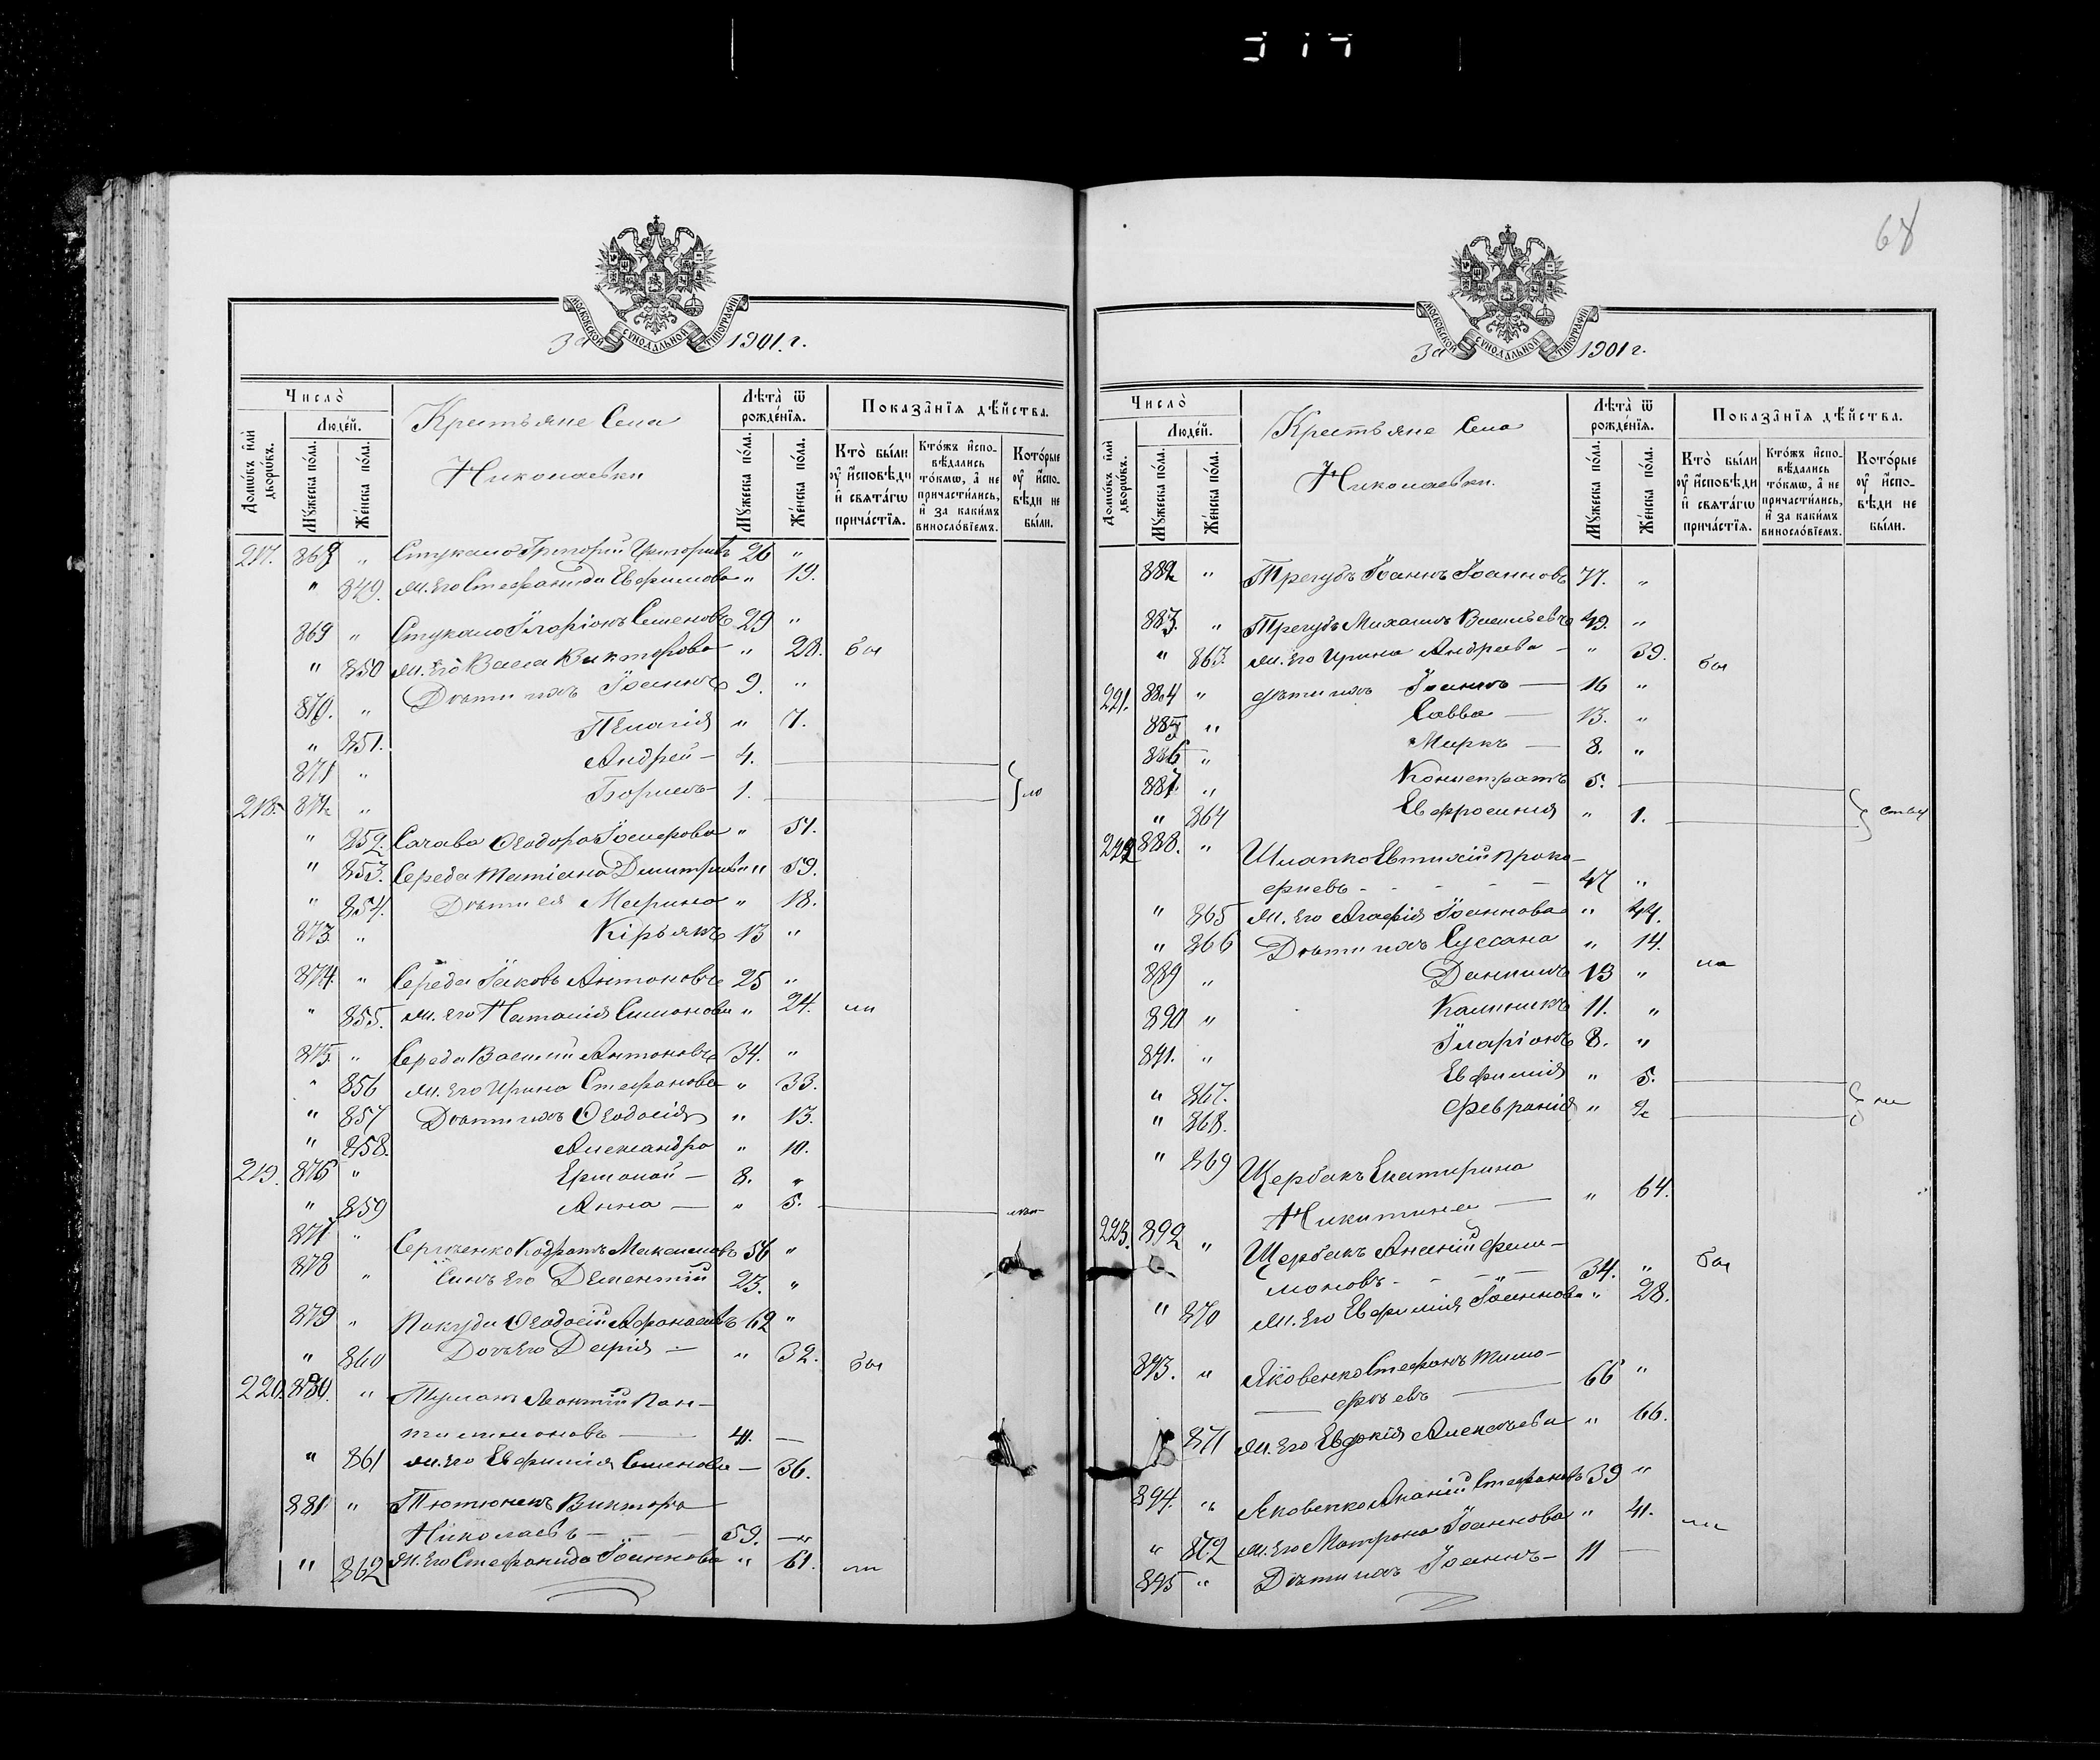 68
МОСКОВСКОЙ СѴНОДАЛЬНОЙ ТИПОГРАФІИ
За 1901. г.
Число̀
Домѡ́въ и҆лѝ дворѡ́въ.
Люде́й.
Мꙋ́жеска по́ла.
Же́нска по́ла.
Крестьяне Села
Николаевки
Лѣ́та ѿ рожде́нїѧ.
Мꙋ́жеска по́ла.
Же́нска по́ла.
Показа̑нїѧ дѣ́йства.
Кто̀ бы́ли ᲂу҆ и҆сповѣ́ди и҆ свѧта́гѡ прича́стїѧ.
Кто́жъ и҆сповѣ́дались то́кмѡ, а҆ не причасти́лись, и҆ за каки́мъ винослове́емъ.
Кото́рые ᲂу҆ и҆сповѣ́ди не бы́ли.
217. 868 " Стукало Григорій Григорьевъ 26 "
" 849. ж. его Стефанида Евфимова " 19.
869 " Стукало Іларіонъ Семеновъ 29 "
" 850 ж. его Васса Викторова " 28. бы
870. " Дѣти ихъ Іоаннъ 9. "
" 851. Пелагія " 7.
871 " Андрей — 4.
218. 872 " Борисъ — 1.
" 852. Сачава Ѳеодора Іосифова " 51.
" 853. Середа Татіана Димитріева " 59.
" 854. Дѣти ея Марина " 18.
873 " Кірьякъ 13 "
874. " Середа Іаковъ Антоновъ 25 "
" 855. ж. его Наталія Симонова " 24. ли
875. " Середа Василій Антоновъ 34. "
" 856 ж. его Ирина Стефанова " 33.
" 857 Дѣти ихъ Ѳеодосія " 13.
" 858. Александра " 10.
219. 876 " Ермолай — 8. "
" 859 Анна — " 5.
877 " Сергіенко Кодратъ Максимовъ 56 "
878 " Сынъ его Дементій 23. "
879 " Пакуда Ѳеодосій Аѳанасіевъ 62 "
" 860 Дочь его Дарія — " 32. бы
220. 880. " Туманъ Леонтій Пан-
тилимоновъ — 41. —
" 861 ж. его Евфимія Семенова — 36.
881 " Тютюникъ Викторъ
Николаевъ — 59. — "
" 862 ж. его Стефанида Іоаннова " 61. ли
МОСКОВСКОЙ СѴНОДАЛЬНОЙ ТИПОГРАФІИ
За 1901 г.
Число̀
Домѡ́въ и҆лѝ дворѡ́въ.
Люде́й.
Мꙋ́жеска по́ла.
Же́нска по́ла.
Крестьяне Села
Николаевки.
Лѣ́та ѿ рожде́нїѧ.
Мꙋ́жеска по́ла.
Же́нска по́ла.
Показа̑нїѧ дѣ́йства.
Кто̀ бы́ли ᲂу҆ и҆сповѣ́ди и҆ свѧта́гѡ прича́стїѧ.
Кто́жъ и҆сповѣ́дались то́кмѡ, а҆ не причасти́лись, и҆ за каки́мъ винослове́емъ.
Кото́рые ᲂу҆ и҆сповѣ́ди не бы́ли.
882 " Трегубъ Іоаннъ Іоанновъ 77. "
883. " Трегубъ Михаилъ Васильевъ 49. "
" 863. ж. его Ирина Андреева — " 39. бы
221. 884 " дѣти ихъ Іоаннъ — 16 "
885 " Савва — 13. "
886 " Маркъ — 8. "
887. " Конистратъ 5.
" 864 Евфросинія " 1.
222 888. " Шлапко Евтихій Проко-
фіевъ - - - - — 47 "
" 865 ж. его Агафія Іоаннова " 44.
" 866 Дѣти ихъ Суссана " 14.
889 " Даниилъ 13 " ли
890 " Калиникъ 11. "
891. " Іларіонъ 8. "
" 867. Евфимія " 5.
" 868. Февронія " 2
" 869 Щербакъ Екатирина
Никитина — " 64.
223. 892 " Щербакъ Ананій Фили-
моновъ - - - — 34. " бы
" 870 ж. его Евфимія Іоаннова " 28.
893. " Яковенко Стефанъ Тимо-
— фѣевъ — 66 "
871 ж. его Евдокія Алексѣева " 66.
894. " Яковенко Ананій Стефановъ 39 "
" 872 ж. его Матрона Іоаннова " 41. ли
895 " Дѣти ихъ Іоаннъ — 11 —